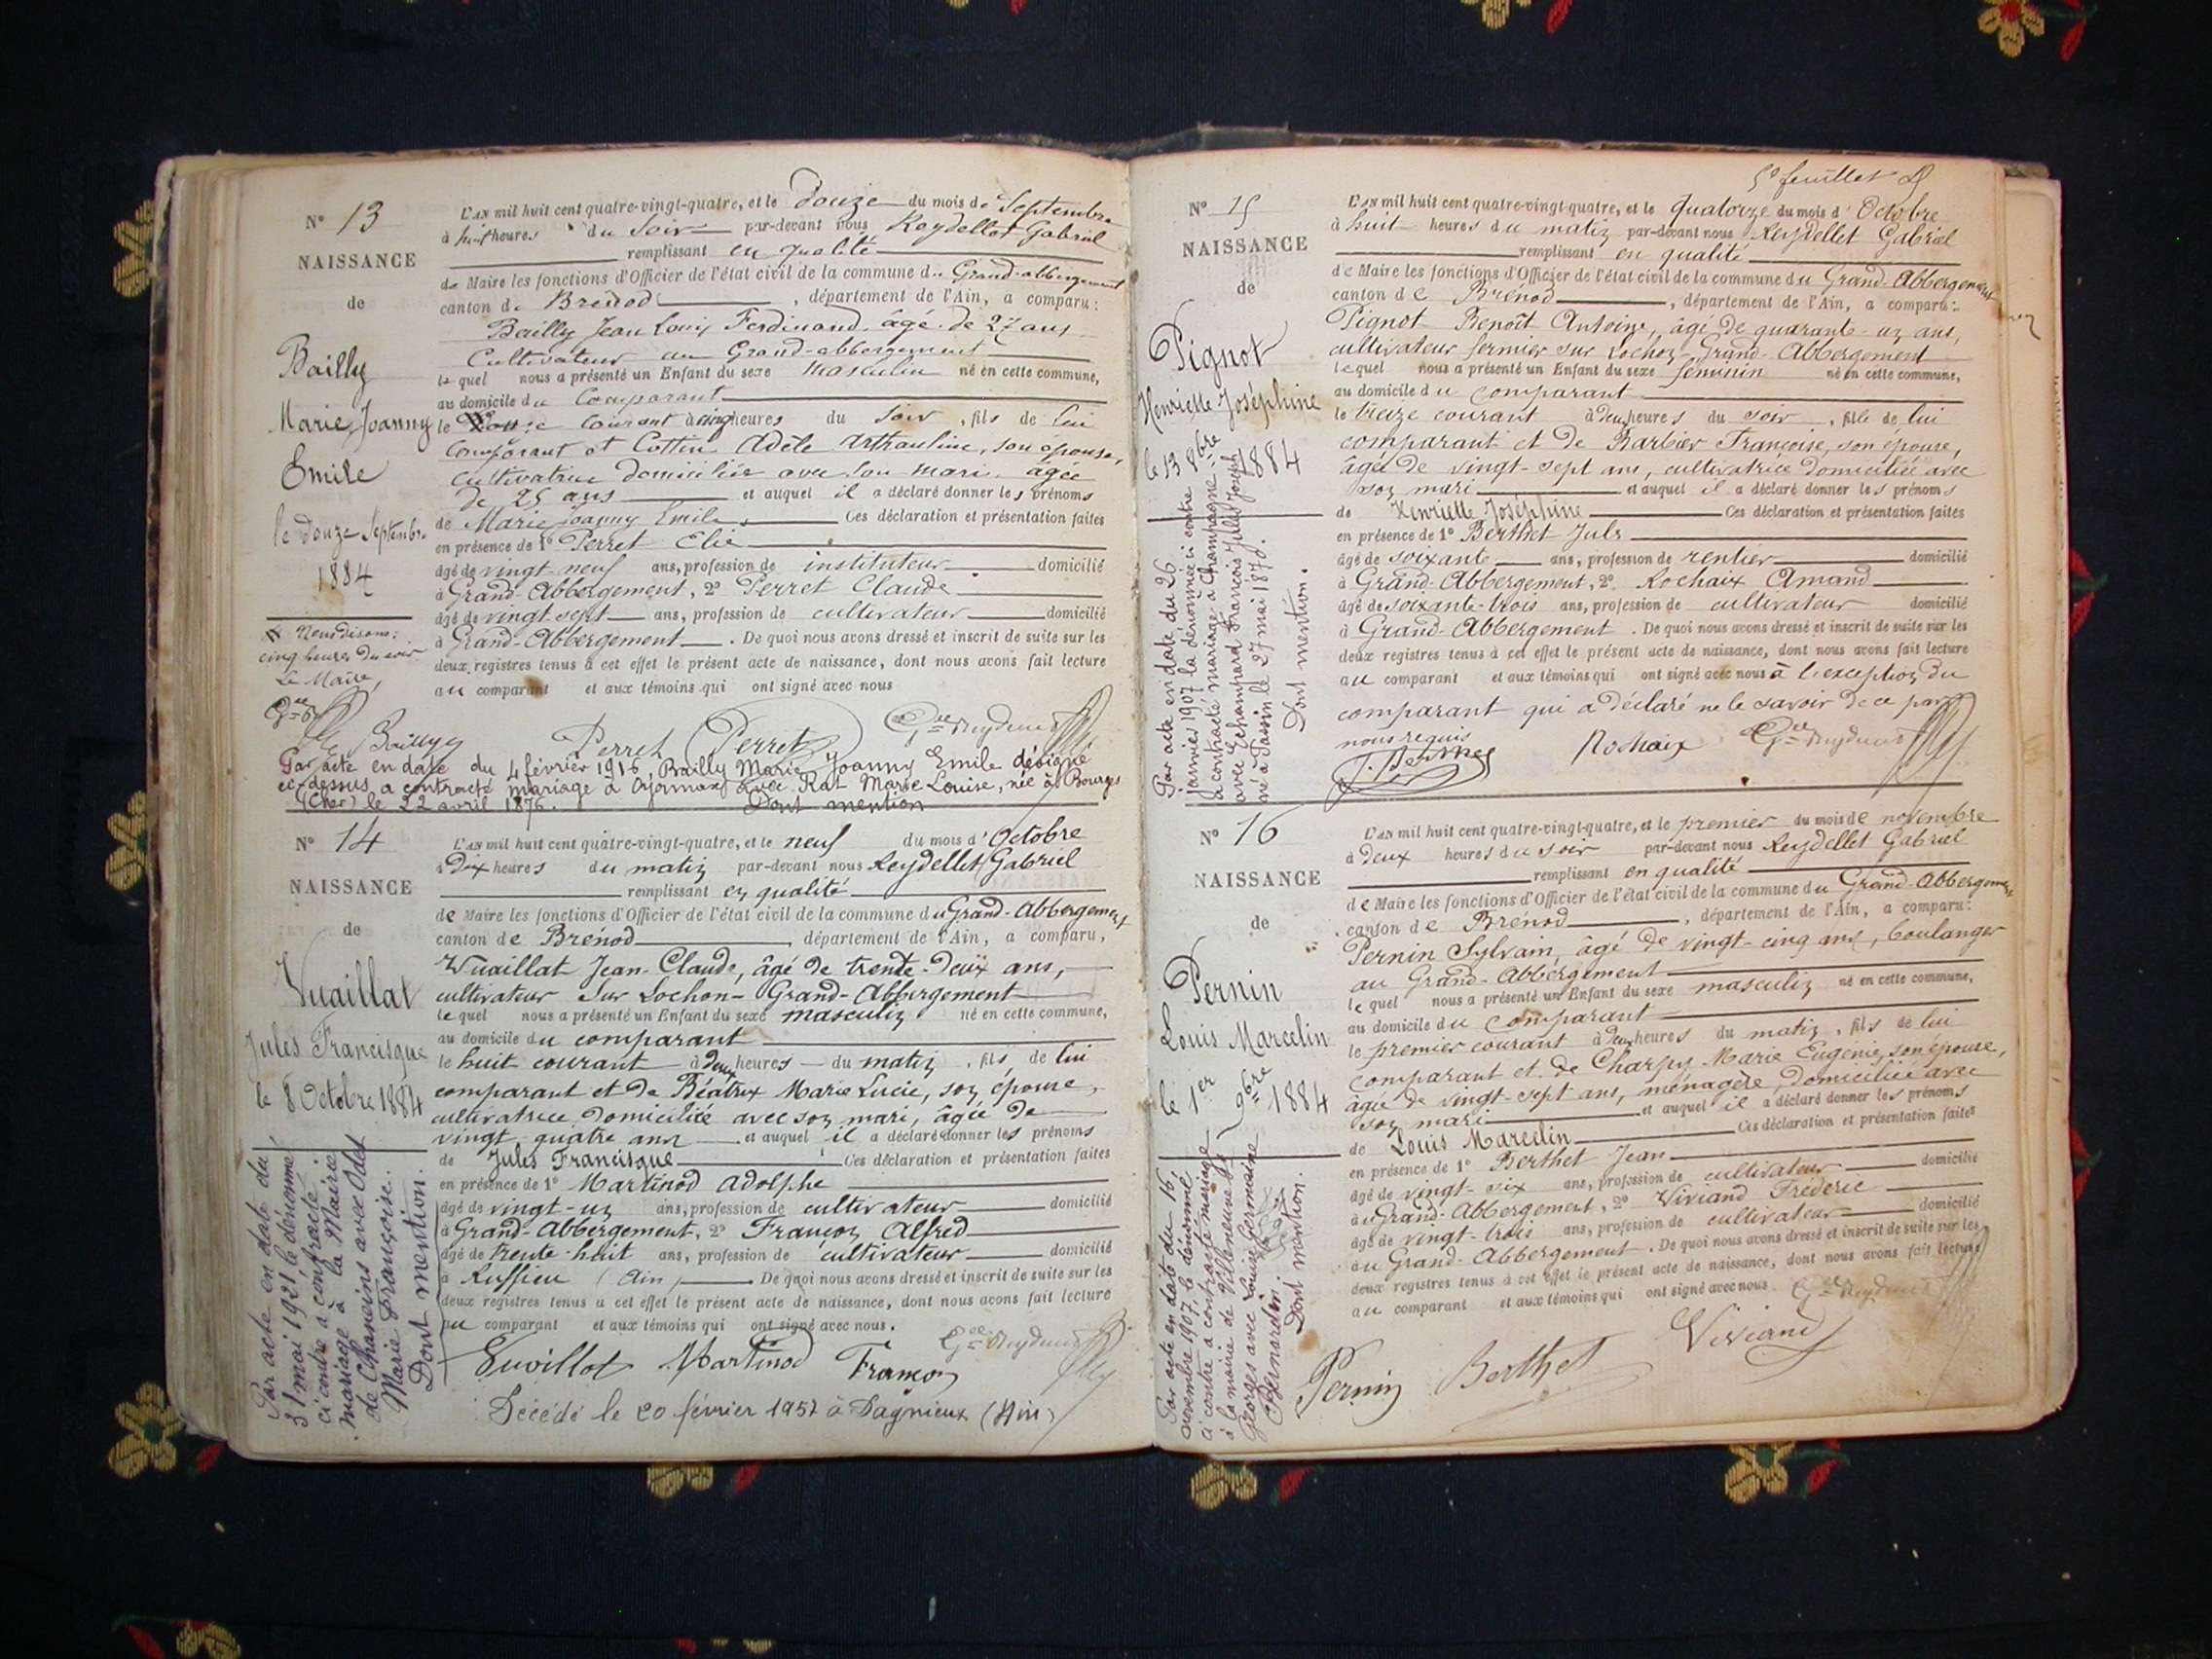 N° 13
NAISSANCE
de
Bailly
Marie Joanny
Emile
le douze Septembre
1884
Nous disons:
cinq heures du soir
Le Maire,
L'AN mil huit cent quatre-vingt-quatre, et le Douze du mois de Septembre
à huit heures du Soir par-devant nous Reydellet Gabriel
remplissant en qualité
de Maire les fonctions d'Officier de l'état civil de la commune du Grand-abbergement
canton de Brenod, département de l'Ain, a comparu:
Bailly Jean Louis Ferdinand âgé de 27 ans
Cultivateur au Grand-abbergement
lequel nous a présenté un Enfant du sexe Masculin né en cette commune,
au domicile du Comparant
le courant à cinq heures du Soir, fils de lui
Comparant et Cottin Adèle, son épouse,
Cultivatrice domiciliée avec son mari âgée
de 25 ans et auquel il a déclaré donner les prénoms
de Marie Joanny Emile. Ces déclaration et présentation faites
en présence de 1° Perret Elie
âgé de vingt neuf ans, profession de instituteur domicilié
à Grand-Abbergement, 2° Perret Claude
âgé de vingt sept ans, profession de cultivateur domicilié
à Grand-Abbergement. De quoi nous avons dressé et inscrit de suite sur les
deux registres tenus à cet effet le présent acte de naissance, dont nous avons fait lecture
au comparant et aux témoins qui ont signé avec nous
Bailly Perret Perret
Par acte en date du 4 février 1916, Bailly Marie Joanny Emile désigné
ci-dessus a contracté mariage à Oyonnax avec Rat Marie Louise, née à Bourges
(Cher) le 22 avril 1876. Dont mention
N° 14
NAISSANCE
de
Vuaillat
Jules Francisque
le 8 Octobre 1884
Par acte en date du
31 mai 1921 le dénommé
ci contre a contracté
mariage à la Mairie
de Chaneins avec Odet
Marie Françoise.
Dont mention.
L'AN mil huit cent quatre-vingt-quatre, et le neuf du mois d'Octobre
à Dix heures du matin par-devant nous Reydellet Gabriel
remplissant en qualité
de Maire les fonctions d'Officier de l'état civil de la commune du Grand-Abbergement
canton de Brénod, département de l'Ain, a comparu,
Vuaillat Jean-Claude, âgé de trente-deux ans,
cultivateur Sur Lochon-Grand-Abbergement
lequel nous a présenté un Enfant du sexe masculin né en cette commune,
au domicile du comparant
le huit courant à deux heures du matin, fils de lui
comparant et de Béatrix Marie Lucie, son épouse,
cultivatrice domiciliée avec son mari, âgée de
vingt quatre ans et auquel il a déclaré donner les prénoms
de Jules Francisque Ces déclaration et présentation faites
en présence de 1° Martinod Adolphe
âgé de vingt-un ans, profession de cultivateur domicilié
à Grand-Abbergement, 2° Françon Alfred
âgé de trente-huit ans, profession de cultivateur domicilié
à Ruffieu (Ain). De quoi nous avons dressé et inscrit de suite sur les
deux registres tenus à cet effet le présent acte de naissance, dont nous avons fait lecture
au comparant et aux témoins qui ont signé avec nous.
Martinod Françon
Décédé le 20 février 1957 à Dagnieux (Ain)
5e feuillet
N° 15
NAISSANCE
de
Pignot
Henriette Joséphine
le 13 8bre 1884
Par acte en date du 26
Janvier 1907 la dénommée ci contre
a contracté mariage à Champagne
avec Champard François Jules Joseph
né à Tassin le 27 mai 1878.
Dont mention.
L'AN mil huit cent quatre-vingt-quatre, et le quatorze du mois d'Octobre
à huit heures du matin par-devant nous Reydellet Gabriel
remplissant en qualité
de Maire les fonctions d'Officier de l'état civil de la commune du Grand-Abbergement
canton de Brénod, département de l'Ain, a comparu:
Pignot Benoît Antoine, âgé de quarante-un ans,
cultivateur fermier sur Lochon Grand-Abbergement
lequel nous a présenté un Enfant du sexe féminin né en cette commune,
au domicile du comparant
le treize courant à deux heures du soir, fille de lui
comparant et de Barbier Françoise, son épouse,
âgée de vingt-sept ans, cultivatrice domiciliée avec
son mari et auquel il a déclaré donner les prénoms
de Henriette Joséphine Ces déclaration et présentation faites
en présence de 1° Berthet Juls
âgé de soixante ans, profession de rentier domicilié
à Grand-Abbergement, 2° Rochaix Amand
âgé de soixante-trois ans, profession de cultivateur domicilié
à Grand-Abbergement. De quoi nous avons dressé et inscrit de suite sur les
deux registres tenus à cet effet le présent acte de naissance, dont nous avons fait lecture
au comparant et aux témoins qui ont signé avec nous à l'exception du
comparant qui a déclaré ne le savoir de ce par
nous requis
Rochaix
N° 16
NAISSANCE
de
Pernin
Louis Marcelin
le 1er 9bre 1884
Par acte en date du 16
novembre 1907, le dénommé
ci contre a contracté mariage
à la mairie de Villeneuve St
Georges avec Louise Germaine
Bernardin.
Dont mention.
L'AN mil huit cent quatre-vingt-quatre, et le premier du mois de novembre
à deux heures du soir par-devant nous Reydellet Gabriel
remplissant en qualité
de Maire les fonctions d'Officier de l'état civil de la commune du Grand-Abbergement
canton de Brénod, département de l'Ain, a comparu:
Pernin Sylvain, âgé de vingt-cinq ans, boulanger
au Grand-Abbergement
lequel nous a présenté un Enfant du sexe masculin né en cette commune,
au domicile du comparant
le premier courant à deux heures du matin, fils de lui
comparant et de Charpy Marie Eugénie, son épouse,
âgée de vingt-sept ans, ménagère, domiciliée avec
son mari et auquel il a déclaré donner les prénoms
de Louis Marcelin Ces déclaration et présentation faites
en présence de 1° Berthet Jean
âgé de vingt-six ans, profession de cultivateur domicilié
au Grand-Abbergement, 2° Viviand Fréderic
âgé de vingt-trois ans, profession de cultivateur domicilié
au Grand-Abbergement. De quoi nous avons dressé et inscrit de suite sur les
deux registres tenus à cet effet le présent acte de naissance, dont nous avons fait lecture
au comparant et aux témoins qui ont signé avec nous.
Pernin Berthet Viviand